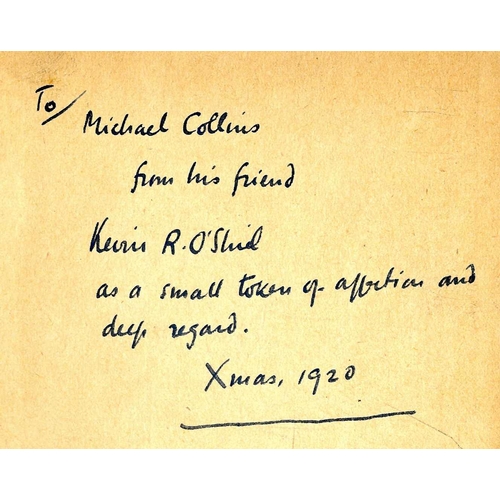 To/
Michael Collins
from his friend
Kevin R. O'Shiel
as a small token of affection and
deep regard.
Xmas, 1920